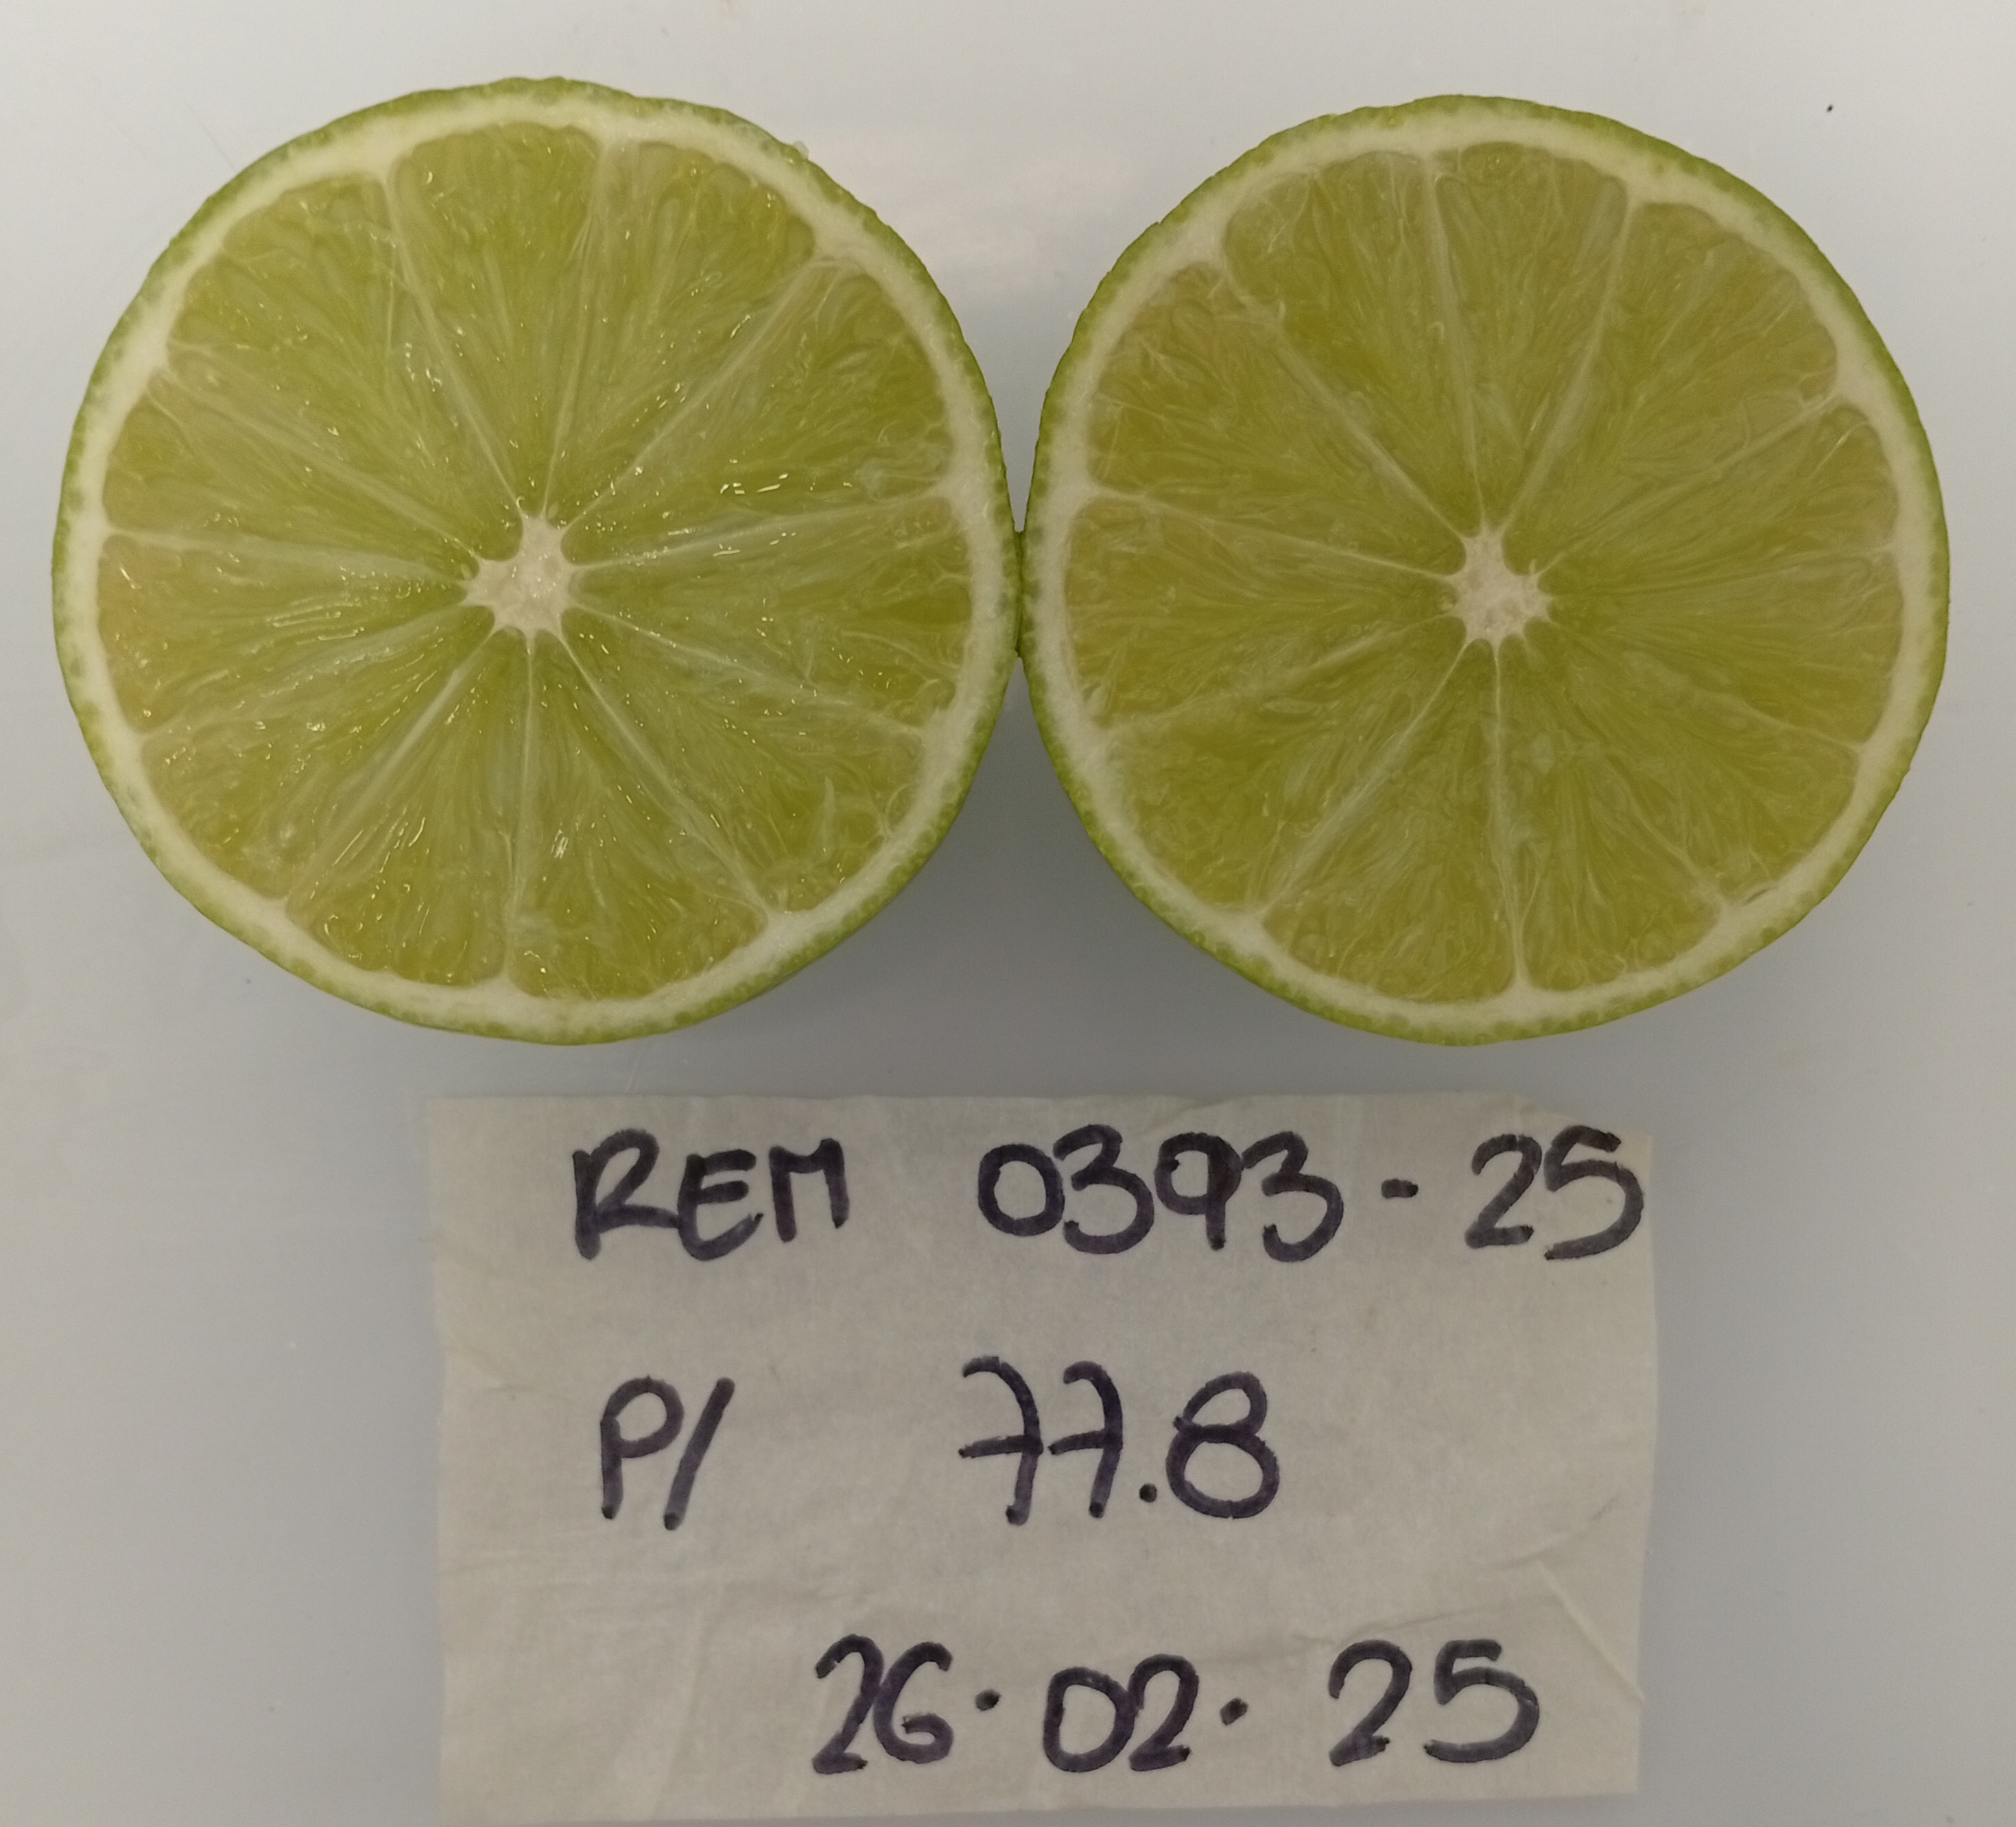 REM 0393-25
P/ 77.8
26.02.25